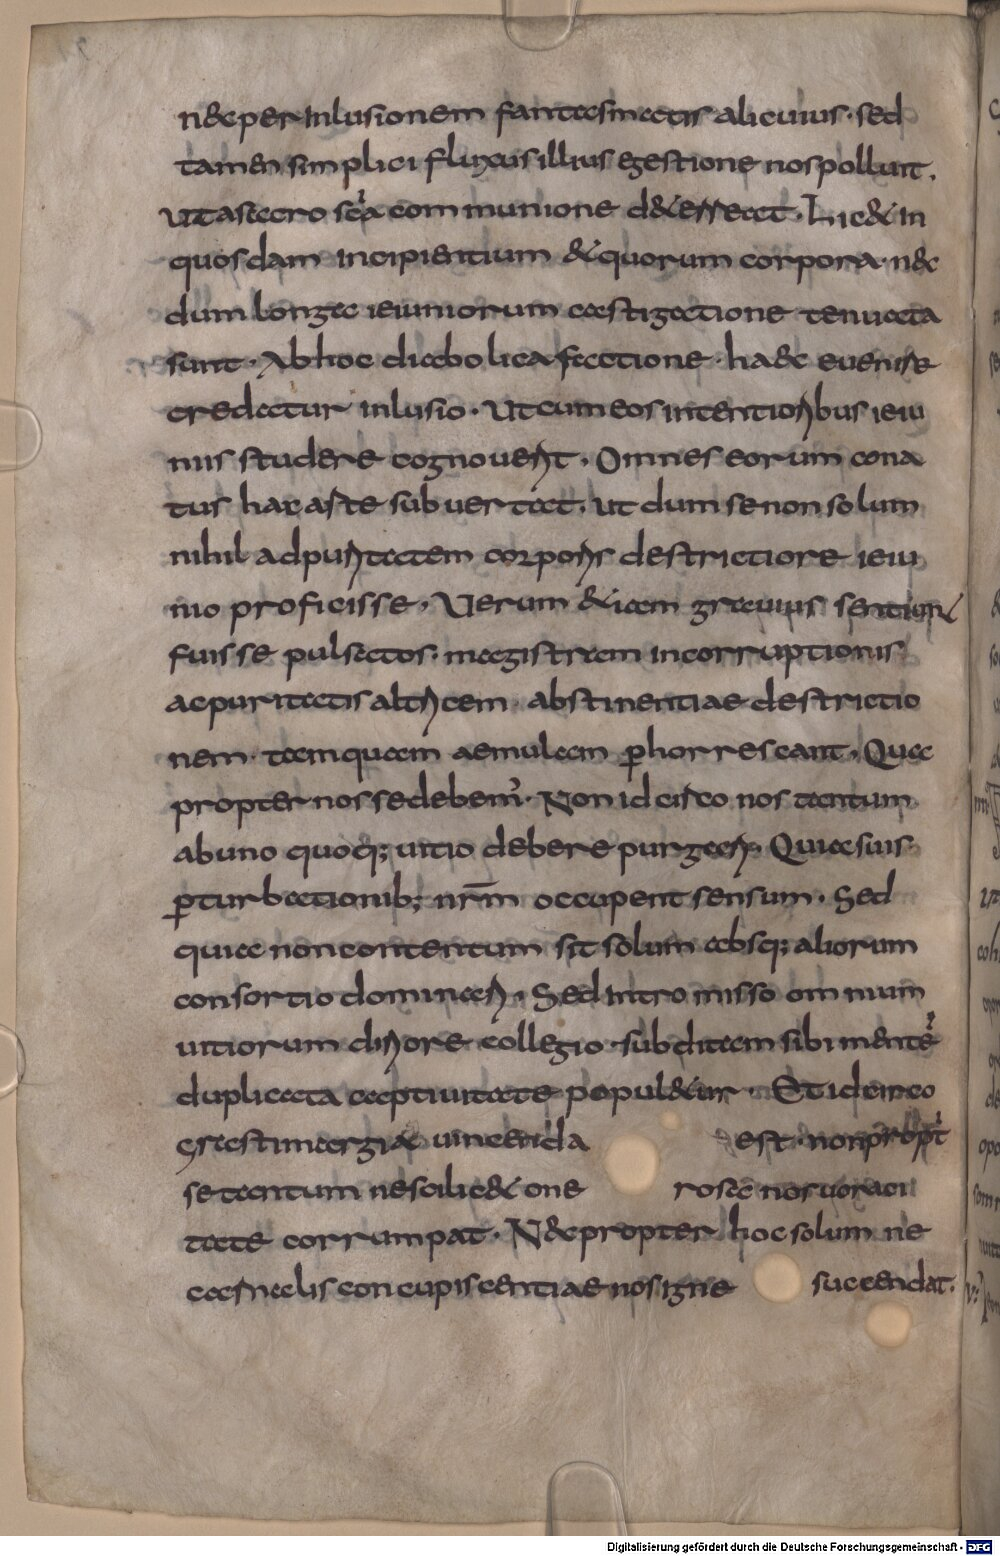 nec per inlusionem fantasmatis alicuius · sed
tamen simplici fluxus illius egestione nos polluit .
Ut a sacro scā communione deterreat . Licet in
quosdam incipientium et quorum corpora nec
dum longa ieiuniorum castigatione tenuata
sunt · Ab hoc diabolica factione haec euenire
credatur inlusio · Ut cum eos intentioribus ieiu
niis studere cognouerit . Omnes eorum cona
tus hac arte subuertat . ut dum se non solum
nihil ad puritatem corporis destrictiore ieiu
nio proficisse . Verum etiam grauius sentiunt
fuisse pulsatos . magistram incorruptionis
ac puritatis altricem · abstinentiae destrictio
nem · tamquam aemulam ꝑhorrescant . Quae
propter nosse debem' · Non idcirco nos tantum
ab uno quoq; uitio debere purgari . Quia suis
ꝑturbationib; nrm̄ occupent sensum . Sed
quia non contentum sit solum absq; aliorum
consortio dominari . Sed intromisso omnium
uitiorum diriore collegio · subditam sibi mente
duplicata captiuitate populetur . Et idcirco
gastrimargiae uincenda est · non propt'
se tantum ne sciliced one rosa nos uoraci
tate corrumpat . Nec propter hoc solum ne
carnalis concupiscentiae nos igne succendat .
Digitalisierung gefördert durch die Deutsche Forschungsgemeinschaft - DFG